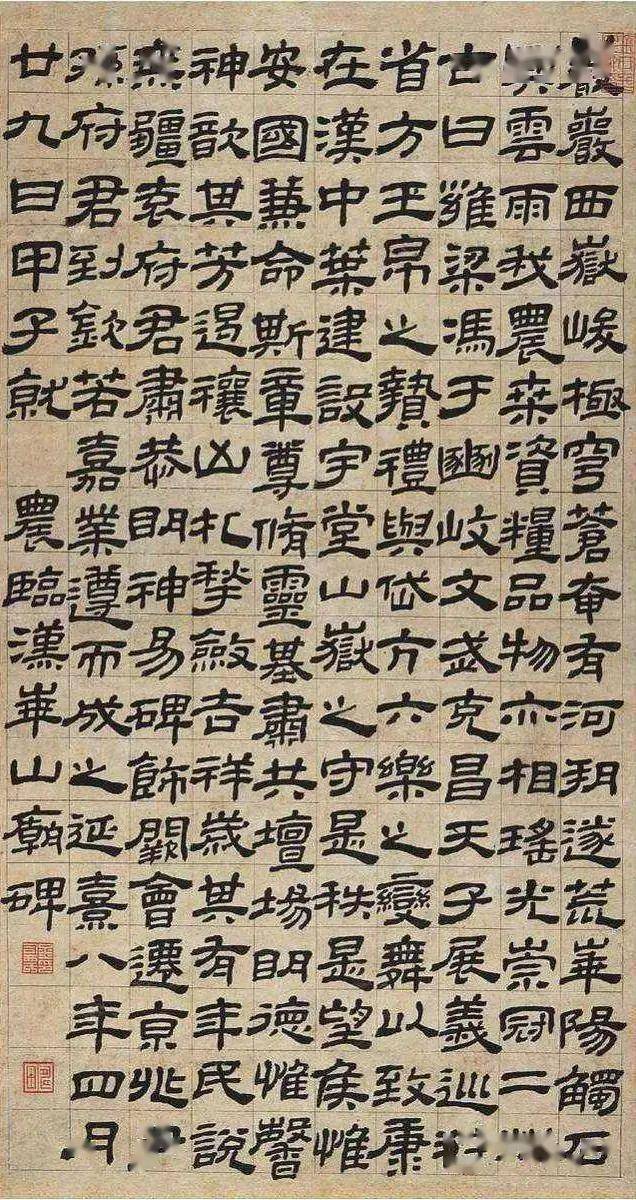 巖西嶽峻極穹蒼奄有河朔遂荒崋陽觸石
雲雨我農桑資糧品物亦相瑤光崇冠二
古曰雍梁馮于豳岐文武克昌天子展義巡
省方玉帛之贄禮與岱亢六樂之變舞以致康
在漢中葉建設宇堂山嶽之守是秩是望侯惟
安國兼命斯章尊脩靈基肅共壇場明德惟馨
神歆其芳遏禳凶札揫斂吉祥歲其有年民說
無疆袁府君肅恭明神易碑飾闕會遷京兆
府君到欽若嘉業遵而成之延熹八年四月
廿九日甲子就 農臨漢崋山廟碑